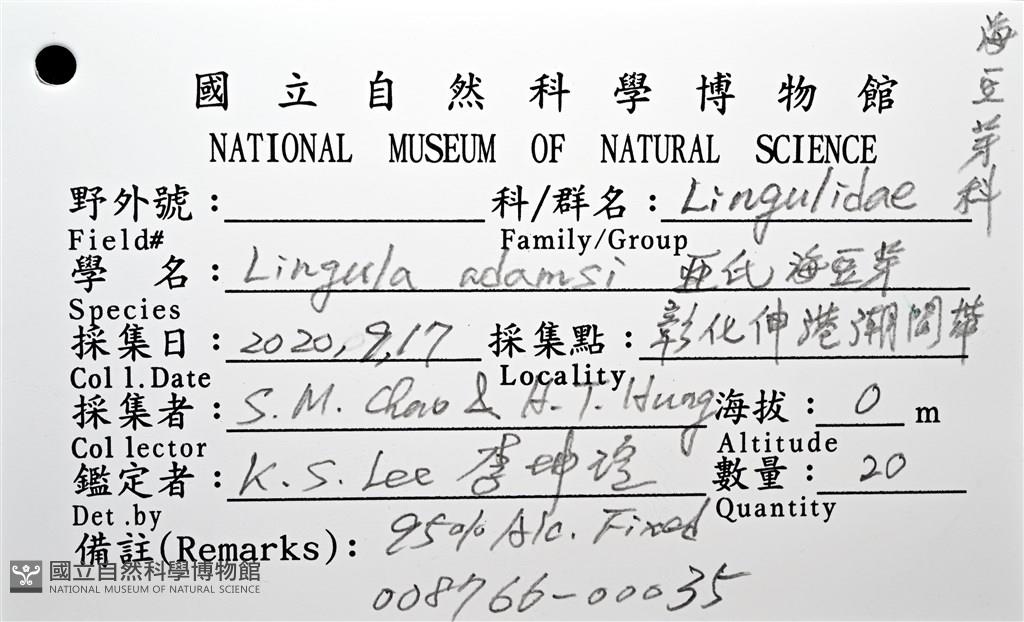 海豆芽科
國立自然科學博物館
NATIONAL MUSEUM OF NATURAL SCIENCE
野外號： 科/群名：Lingulidae
Field# Family/Group
學 名：Lingula adamsi 亞氏海豆芽
Species
採集日：2020,9,17 採集點：彰化伸港潮間帶
Coll.Date Locality
採集者：S. M. Chao & H. T. Hung 海拔：0 m
Collector Altitude
鑑定者：K. S. Lee 李坤瑄 數量：20
Det.by Quantity
備註(Remarks)：95% Alc. Fixed
008766-00035
國立自然科學博物館
NATIONAL MUSEUM OF NATURAL SCIENCE